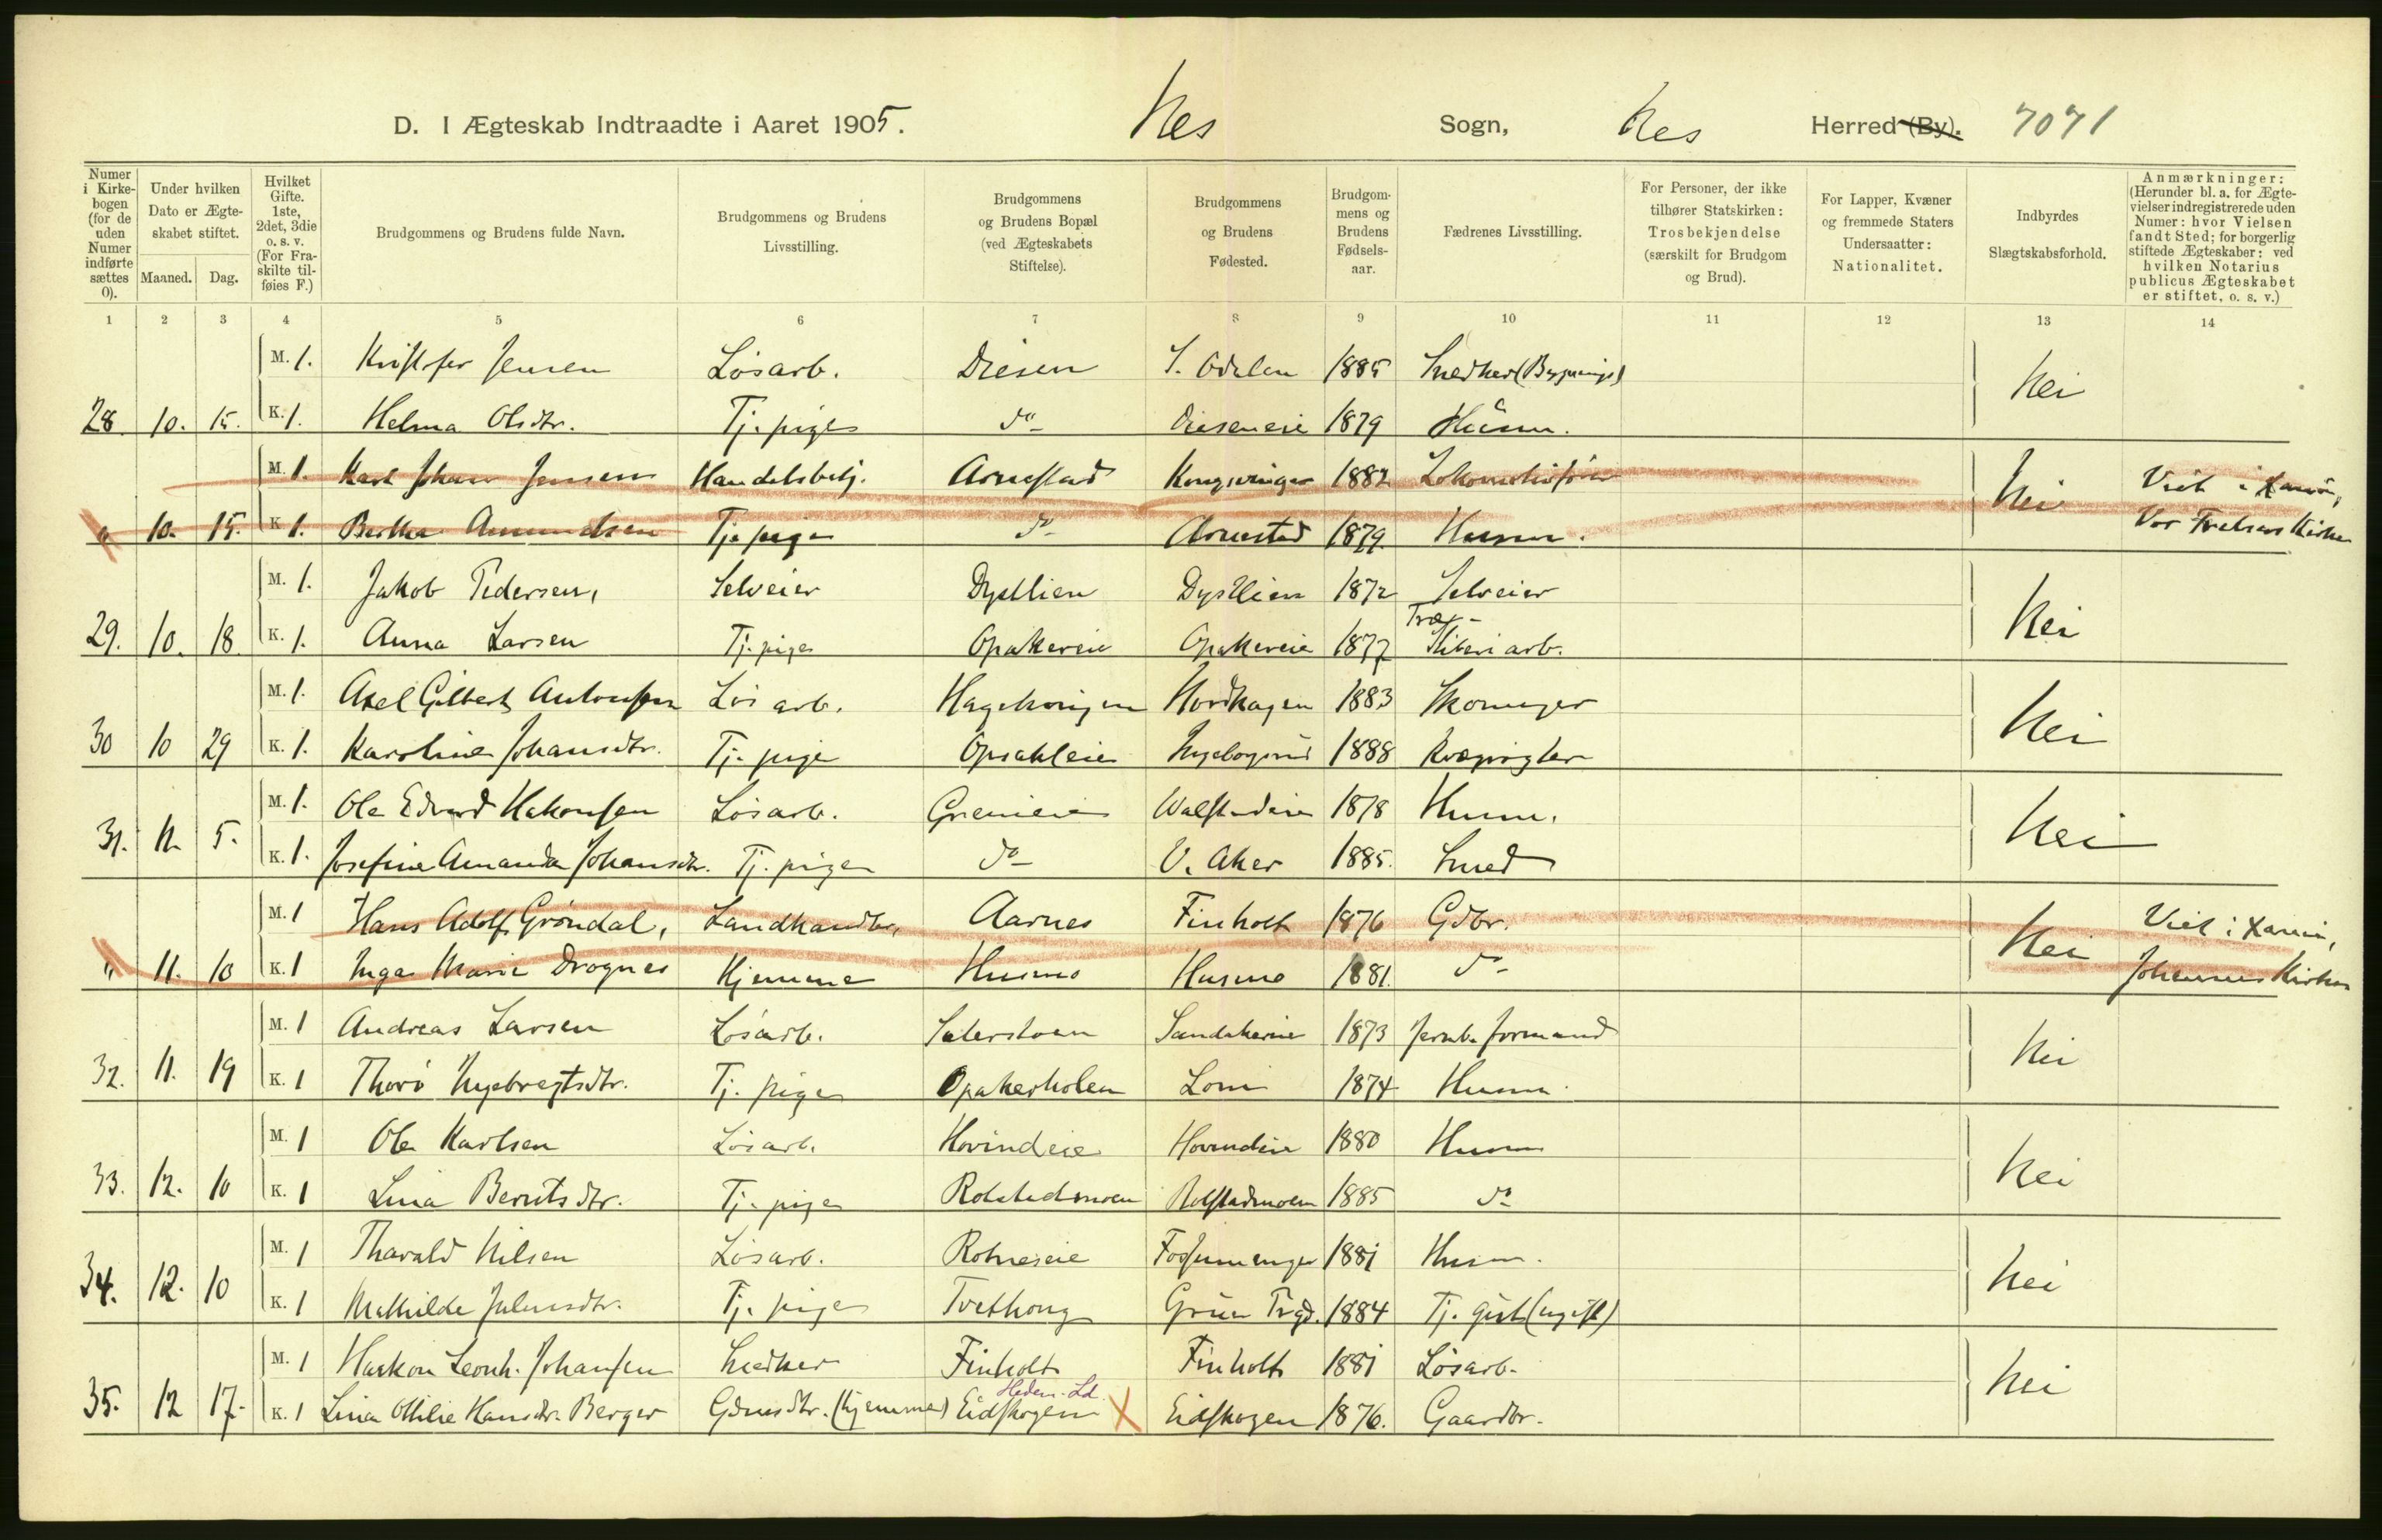 D. I Ægteskab Indtraadte i Aaret 1905. Nes Sogn, Nes Herred (By). 7071
Numer i Kirkebogen (for de uden Numer indførte sættes 0).
Under hvilken Dato er Ægteskabet stiftet.
Maaned. Dag.
Hvilket Gifte. 1ste, 2det, 3die o. s. v. (For Fraskilte tilføies F.)
Brudgommens og Brudens fulde Navn.
Brudgommens og Brudens Livsstilling.
Brudgommens og Brudens Bopæl (ved Ægteskabets Stiftelse).
Brudgommens og Brudens Fødested.
Brudgommens og Brudens Fødselsaar.
Fædrenes Livsstilling.
For Personer, der ikke tilhører Statskirken: Trosbekjendelse (særskilt for Brudgom og Brud).
For Lapper, Kvæner og fremmede Staters Undersaatter: Nationalitet.
Indbyrdes Slægtskabsforhold.
Anmærkninger: (Herunder bl. a. for Ægtevielser indregistrerede uden Numer: hvor Vielsen fandt Sted; for borgerlig stiftede Ægteskaber: ved hvilken Notarius publicus Ægteskabet er stiftet, o. s. v.)
1 2 3 4 5 6 7 8 9 10 11 12 13 14
M. 1. Kristofer Jensen Løsarb. Diesen S. Odalen 1885 Snedker (Bygnings) Nei
28. 10. 15. K. 1. Helma Olsdtr. Tj. pige do Dieseneie 1879 Husm.
M. 1. Karl Johan Jensen Handelsbetj. Arnestad Kongsvinger 1882 Lokomotivfører Nei Viet i Xania,
" 10. 15. K 1. Berthe Amundsen Tj. pige do Arnestad 1879. Husm. Vor Frelsers Kirke
M. 1. Jakob Pedersen, Selveier Dystlien Dystlien 1872 Selveier Nei
29. 10. 18 K. 1. Anna Larsen Tj. pige Opakereie Opakereie 1877 Træ- Sliberiarb.
M. 1. Axel Gilbert Antonsen Løsarb. Hagakorigen Nordhagen 1883 Skomager Nei
30 10 29 K. 1. Karoline Johansdtr. Tj. pige Opsahleie 1888 Kvægrøgter
M. 1. Ole Edvard Hakonsen Løsarb. Grenieie 1878 Husm. Nei
31. 11. 5. K. 1. Josefine Amanda Johansdtr. Tj. pige do V. Aker 1885. Smed
M. 1 Hans Adolf Grøndal, Landhandler, Aarnes Finholt 1876 Gdbr. Nei Viet i Xania,
" 11. 10 K. 1 Inga Marie Drognes Hjemme Husmo Husmo 1881. do Johannes Kirke
M. 1 Andreas Larsen Løsarb. Sæterstøen Sandakereie 1873 Jernb. formand Nei
32. 11. 19 K. 1 Thori Ingebregtsdtr. Tj. pige Opakerholen Lom 1874 Husm.
M. 1 Ole Karlsen Løsarb. Hovindeie Hovindeie 1880 Husm Nei
33. 12. 10 K. 1 Lina Berntsdtr. Tj. pige Rolstadmoen Rolfstadmoen 1885 do
M. 1 Tharald Nilsen Løsarb. Rotneseie Fosfumenger 1881 Husm. Nei
34. 12. 10 K. 1 Mathilde Juliusdtr. Tj. pige Tvethoug Grue Prgd. 1884 Tj. gut (ugift)
M. 1 Haakon Leonh. Johansen Snedker Finholt Finholt 1881 Løsarb. Nei
Hedem. Ld.
35. 12 17. K. 1 Lina Othilie Hansdtr. Berger Gdmsdtr. (hjemme) Eidskogen X Eidskogen 1876. Gaardbr.